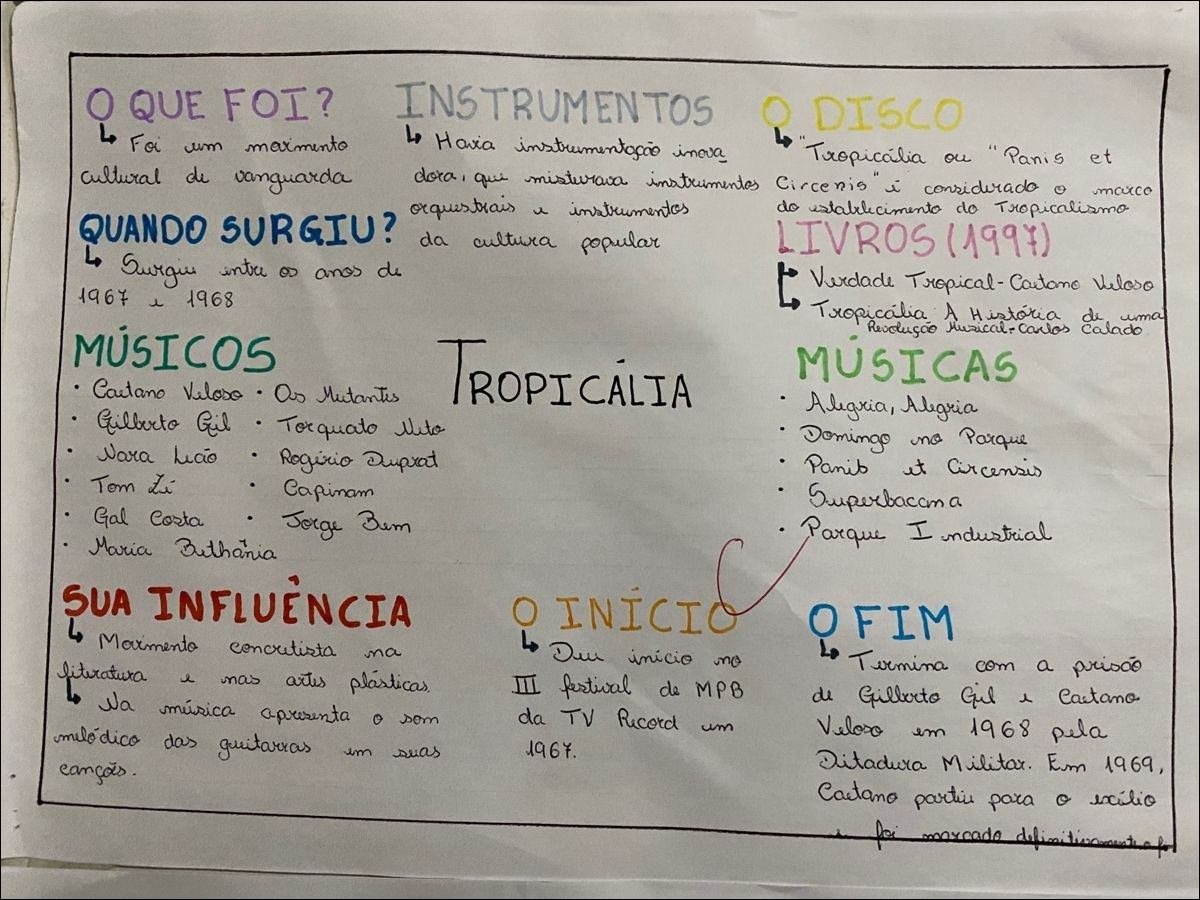 O QUE FOI?
Foi um movimento
cultural de vanguarda
QUANDO SURGIU?
Surgiu entre os anos de
1967 e 1968
INSTRUMENTOS
Havia instrumentação inova
dora, que misturava instrumentos
orquestrais e instrumentos
da cultura popular
O DISCO
"Tropicália ou "Panis et
Circenis" é considerado o marco
do estabelecimento do Tropicalismo
LIVROS (1997)
Verdade Tropical - Caetano Veloso
Tropicália: A História de uma
Revolução Musical - Carlos Calado
MÚSICOS
• Caetano Veloso • Os Mutantes
• Gilberto Gil • Torquato Neto
• Nara Leão • Rogério Duprat
• Tom Zé • Capinam
• Gal Costa • Jorge Bem
• Maria Bethânia
TROPICÁLIA
MÚSICAS
• Alegria, Alegria
• Domingo no Parque
• Panis et Circensis
• Superbacana
• Parque Industrial
SUA INFLUÊNCIA
Movimento concretista na
literatura e nas artes plásticas.
Na música apresenta o som
melódico das guitarras em suas
canções.
O INÍCIO
Deu início no
III festival de MPB
da TV Record em
1967.
O FIM
Termina com a prisão
de Gilberto Gil e Caetano
Veloso em 1968 pela
Ditadura Militar. Em 1969,
Caetano partiu para o exílio
e foi marcado definitivamente o